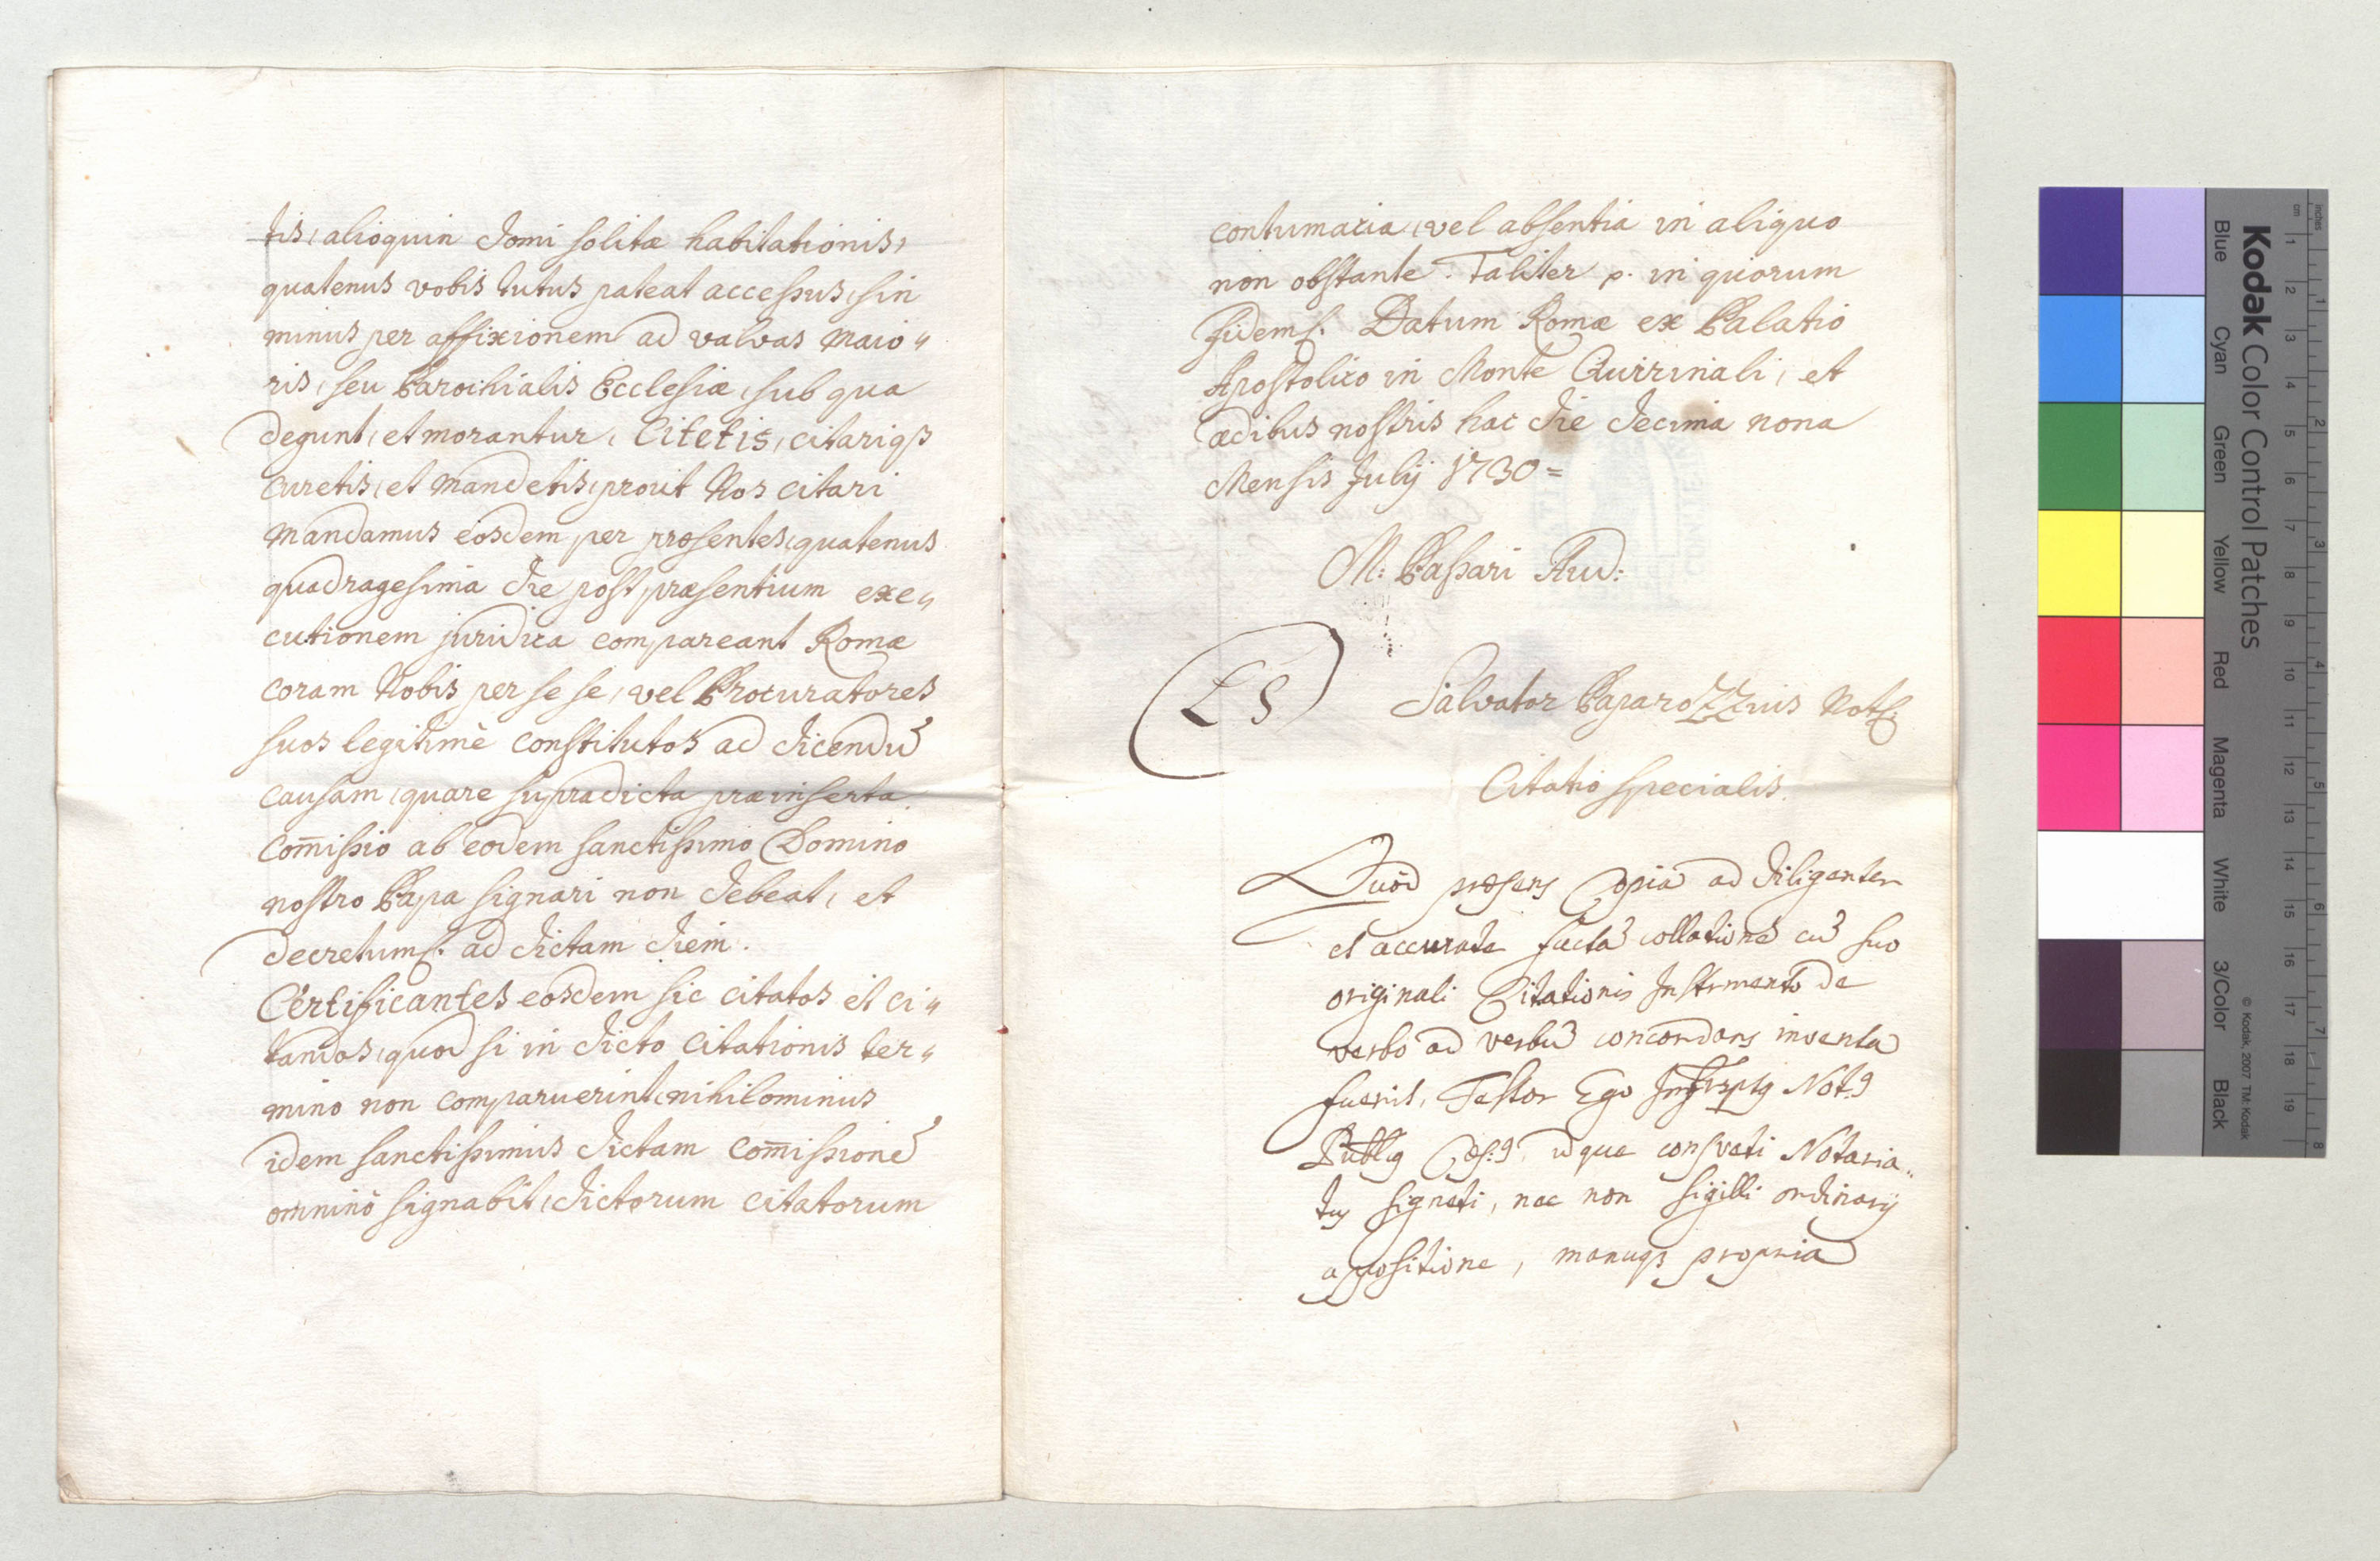 tis, alioquin domi solitæ habitationis,
quatenus vobis tutus pateat accessus, sin
minus per affixionem ad valvas Maio„
ris, seu Parochialis Ecclesiæ, sub qua
degunt, et morantur, Citetis, citariqȝ
curetis, et mandetis, prout Nos citari
mandamus eosdem per præsentes, quatenus
quadragesima die post præsentium exe„
cutionem juridica compareant Romæ
coram Nobis per se se, vel Procuratores
suos legitimè constitutos ad dicendū
causam, quare supradicta præinserta
Com̄issio ab eodem sanctissimo Domino
nostro Papa signari non debeat, et
decretum ad dictam diem.
Certificantes eosdem sic citatos et ci„
tandos, quod si in dicto citationis ter„
mino non comparuerint, nihilominus
idem sanctissimus dictam com̄issionē
omninò signabit, dictorum citatorum
contumacia, vel absentia in aliquo
non obstante. Taliter p. in quorum
fidem. Datum Romæ ex Palatio
Apostolico in Monte Quirinali, et
ædibus nostris hac die decima nona
Mensis Julij 1730=
M: Passari Aud:
LS
Salvator Paparozzius Not:
Citatio specialis.
Quod præsens Copia ad diligenter
et accurate factā collationē cū suo
originali Citationis Instrmento de
verbo ad verbū concordans inventa
fuerit, Testor Ego Infrsptg Not9
Publ9 Cæs:9 idque consveti Notaria„
tus signeti, nec non sigilli ordinarij
appositione, manuqȝ propria
Kodak Color Control Patches
Blue Cyan Green Yellow Red Magenta White 3/Color Black
© Kodak, 2007 TM: Kodak
inches 1 2 3 4 5 6 7 8
cm 1 2 3 4 5 6 7 8 9 10 11 12 13 14 15 16 17 18 19